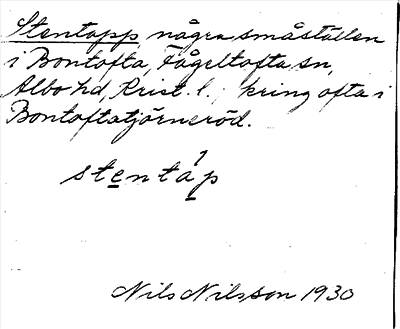 Stentapp några småställen
i Bontofta, Fågeltofta sn,
Albo hd, Krist. l.; kring ofta i
Bontoftatjörneröd.
stentáp
Nils Nilsson 1930